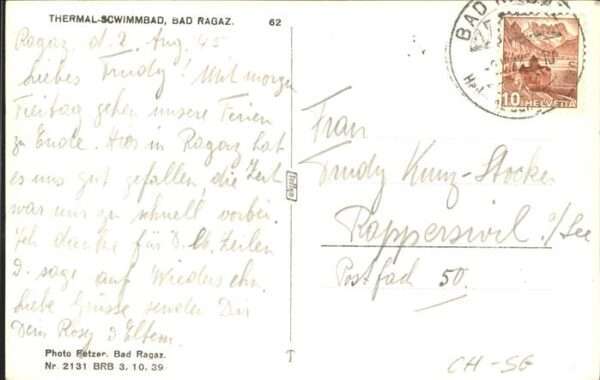 THERMAL-SCWIMMBAD, BAD RAGAZ. 62
Ragaz, d. 2. Aug. 45
Liebes Trudy! Mit morgen
Freitag gehen unsere Ferien
zu Ende. Hier in Ragaz hat
es uns gut gefallen, die Zeit
war uns zu schnell vorbei.
Ich danke für D. lb. Zeilen
& sage auf Wiedersehn.
Liebe Grüsse senden Dir
Dein Rosy & Eltern.
Photo Fetzer, Bad Ragaz.
Nr. 2131 BRB 3. 10. 39
BAD RAGAZ
10 HELVETIA
Frau
Trudy Kunz-Stocker
Rapperswil a/See
Postfach 50.
CH-SG